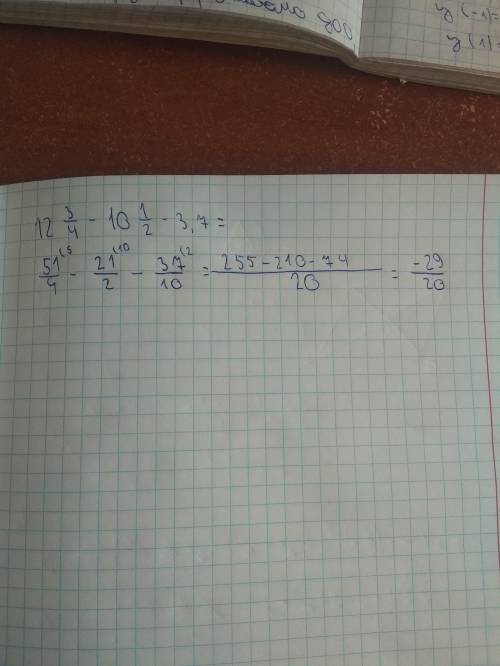 y(-1)=
y(1)-
12 3/4 - 10 1/2 - 3,7 =
51/4 (5 - 21/2 (10 - 37/10 (2 = 255-210-74/20 = -29/20